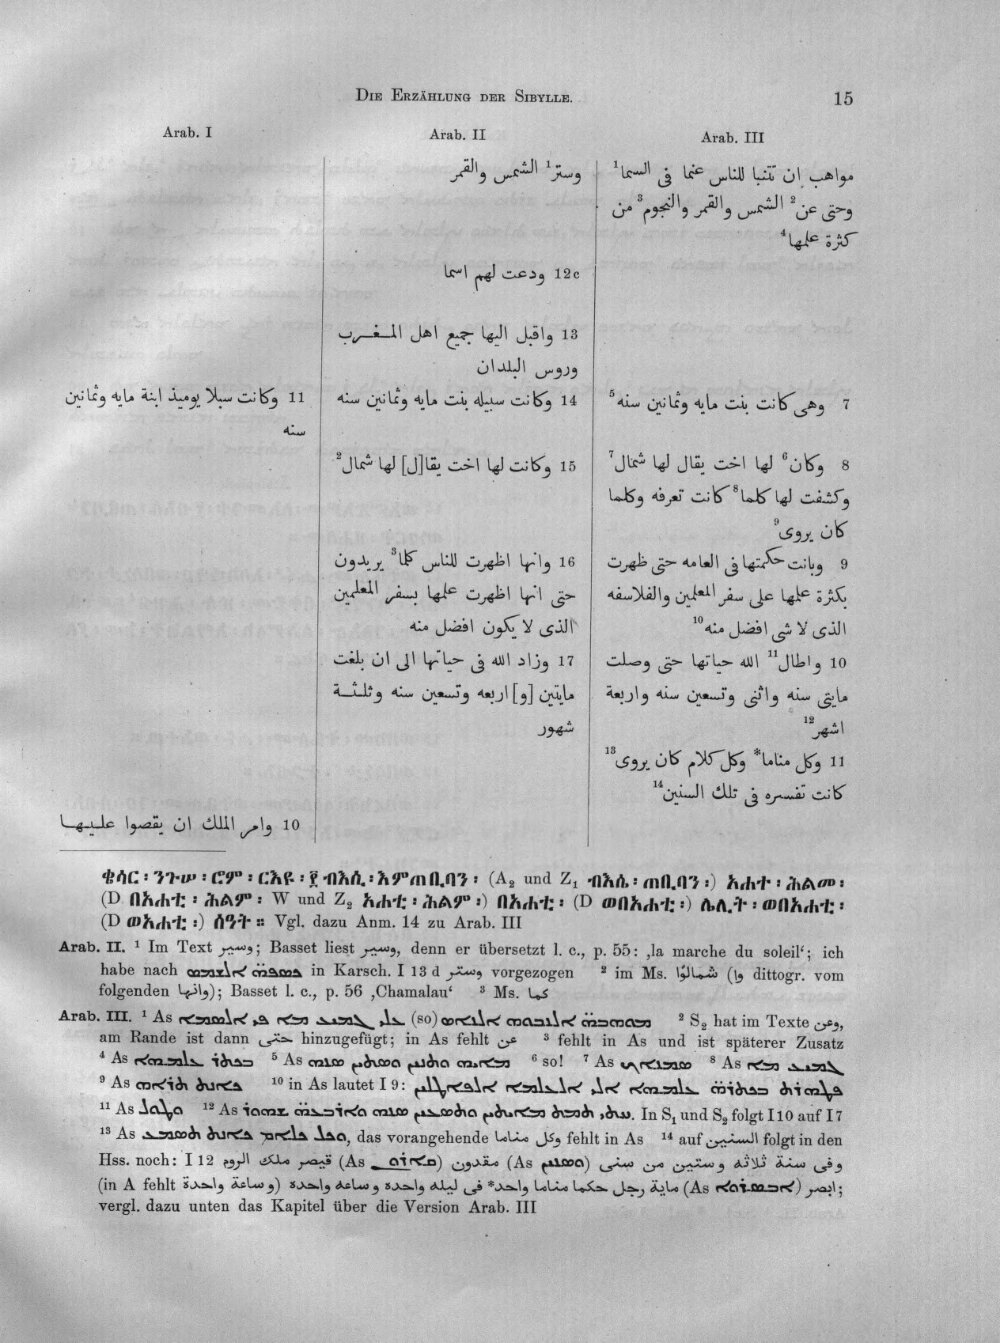 Die Erzählung der Sibylle. 15
Arab. I
Arab. II
Arab. III
11 وكانت سبلا يوميذ ابنة مايه وثمانين
سنه
10 وامر الملك ان يقصوا عليها
وستر¹ الشمس والقمر
12c ودعت لهم اسما
13 واقبل اليها جميع اهل المغرب
وروس البلدان
14 وكانت سبيله بنت مايه وثمانين سنه
15 وكانت لها اخت يقا[ل] لها شمال²
16 وانها اظهرت للناس كلما³ يريدون
حتى انها اظهرت علمها بسفر المعلمين
الذى لا يكون افضل منه
17 وزاد الله فى حياتها الى ان بلغت
مايتين [و]اربعه وتسعين سنه وثلثة
شهور
مواهب ان تتنبا للناس عنما فى السما¹
وحتى عن² الشمس والقمر والنجوم³ من
كثرة علمها⁴
7 وهى كانت بنت مايه وثمانين سنه⁵
8 وكان⁶ لها اخت يقال لها شمال⁷
وكشفت لها كلما⁸ كانت تعرفه وكلما
كان يروى⁹
9 وبانت حكمتها فى العامه حتى ظهرت
بكثرة علمها على سفر المعلمين والفلاسفه
الذى لا شى افضل منه¹⁰
10 واطال¹¹ الله حياتها حتى وصلت
مايتى سنه واثنى وتسعين سنه واربعة
اشهر¹²
11 وكل مناما* وكل كلام كان يروى¹³
كانت تفسره فى تلك السنين¹⁴
ቄሳር ፡ ንጉሠ ፡ ሮም ፡ ርእዩ ፡ ፻ ብእሲ ፡ እምጠቢባን ፡ (A₂ und Z₁ ብእሴ ፡ ጠቢባን ፡) አሐተ ፡ ሕልመ ፡
(D በአሐቲ ፡ ሕልም ፡ W und Z₂ አሐቲ ፡ ሕልም ፡) በአሐቲ ፡ (D ወበአሐቲ ፡) ሌሊት ፡ ወበአሐቲ ፡
(D ወአሐቲ ፡) ሰዓት ። Vgl. dazu Anm. 14 zu Arab. III
Arab. II. ¹ Im Text وسير; Basset liest وسير, denn er übersetzt l. c., p. 55: ‚la marche du soleil‘; ich
habe nach in Karsch. I 13 d وستر vorgezogen ² im Ms. شمالوًا (وا dittogr. vom
folgenden وانها); Basset l. c., p. 56 ‚Chamalau‘ ³ Ms. كما
Arab. III. ¹ As (so) ² S₂ hat im Texte وعن,
am Rande ist dann حتى hinzugefügt; in As fehlt عن ³ fehlt in As und ist späterer Zusatz
⁴ As ⁵ As ⁶ so! ⁷ As ⁸ As
⁹ As ¹⁰ in As lautet I 9:
¹¹ As ¹² As In S₁ und S₂ folgt I 10 auf I 7
¹³ As , das vorangehende وكل مناما fehlt in As ¹⁴ auf السنين folgt in den
Hss. noch: I 12 قيصر ملك الروم (As ) مقدون (As ) وفى سنة ثلاثه وستين من سنى
(in A fehlt وساعة واحدة) ماية رجل حكما مناما واحد* فى ليله واحده وساعه واحده (As ) ابصر;
vergl. dazu unten das Kapitel über die Version Arab. III